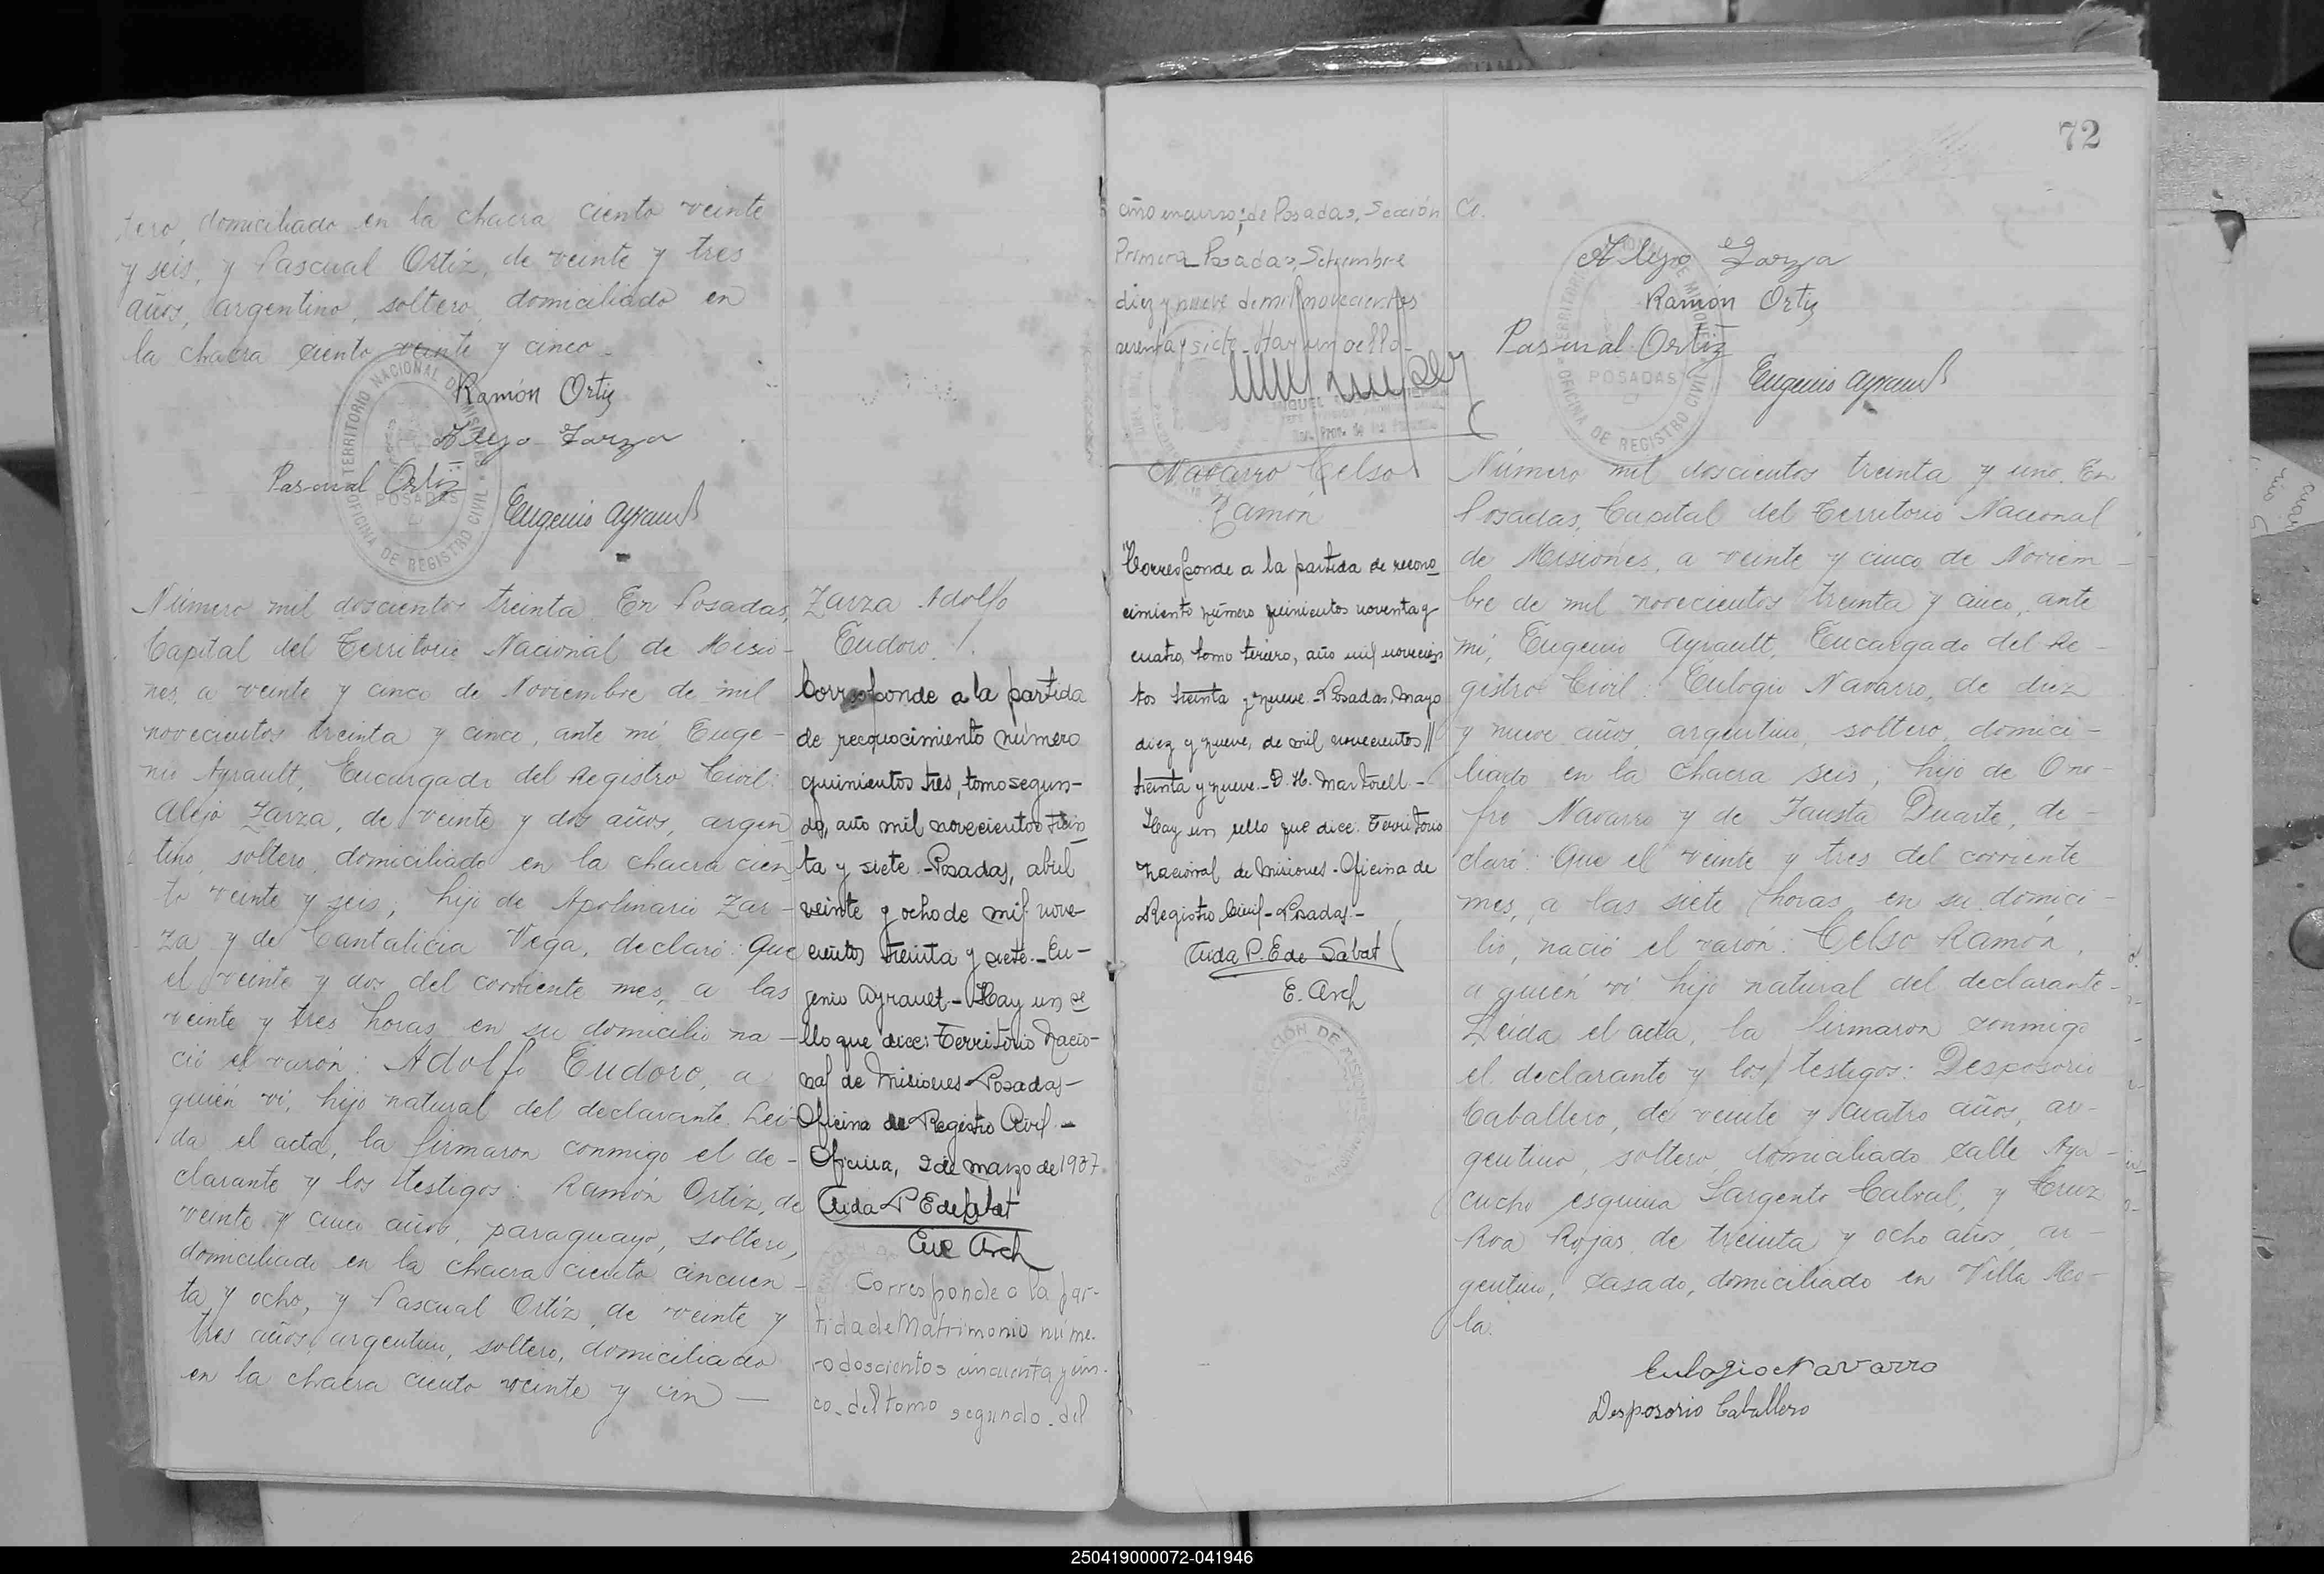 tero, domiciliado en la chacra ciento veinte
y seis, y Pascual Ortíz, de veinte y tres
años, argentino, soltero, domiciliado en
la chacra ciento veinte y cinco.
Ramón Ortiz
Alejo Zarza
Pascual Ortiz
Eugenio Ayrault
TERRITORIO NACIONAL DE MISIONES
POSADAS
OFICINA DE REGISTRO CIVIL
Número mil doscientos treinta. En Posadas,
Capital del Territorio Nacional de Misio-
nes, a veinte y cinco de Noviembre de mil
novecientos treinta y cinco, ante mí, Euge-
nio Ayrault, Encargado del Registro Civil:
Alejo Zarza, de veinte y dos años, argen
tino, soltero, domiciliado en la chacra cien
to veinte y seis, hijo de Apolinario Zar-
za y de Cantalicia Vega, declaró: Que
el veinte y dos del corriente mes, a las
veinte y tres horas, en su domicilio na-
ció el varón: Adolfo Eudoro, a
quién ví, hijo natural del declarante. Leí-
da el acta, la firmaron conmigo el de-
clarante y los testigos: Ramón Ortíz, de
veinte y cinco años, paraguayo, soltero,
domiciliado en la chacra ciento cincuen-
ta y ocho, y Pascual Ortíz, de veinte y
tres años, argentino, soltero, domiciliado
en la chacra ciento veinte y cin—
Zarza Adolfo
Eudoro
Corresponde a la partida
de reconocimiento número
quinientos tres, tomo segun-
do, año mil novecientos trein
ta y siete.-Posadas, abril
veinte y ocho de mil nove-
cientos treinta y siete.-Eu-
genio Ayrault-Hay un se
llo que dice: Territorio Nacio-
nal de Misiones-Posadas-
Oficina de Registro Civil-
Oficina, 2 de marzo de 1937.
Aida P E de Sabat
Arch
Corresponde a la par-
tida de Matrimonio núme-
ro doscientos cincuenta y cin-
co_del tomo segundo_del
año en curso; de Posadas, Sección
Primera_Posadas, Setiembre
diez y nueve de mil novecientos
sesenta y siete_Hay un sello_
Navarro Celso
Ramón
Corresponde a la partida de recono
cimiento número quinientos noventa y
cuatro, tomo tercero, año mil novecien
tos treinta y nueve.-Posadas, Mayo
diez y nueve, de mil novecientos//
treinta y nueve.-D. H. Martorell-
Hay un sello que dice: Territorio
Nacional de Misiones-Oficina de
Registro Civil-Posadas.-
Aida P. E de Sabat
E. Arch
72
co.
Alejo Zarza
Ramón Ortiz
Pascual Ortiz
Eugenio Ayrault
POSADAS
OFICINA DE REGISTRO CIVIL
Número mil doscientos treinta y uno. En
Posadas, Capital del Territorio Nacional
de Misiones, a veinte y cinco de Noviem-
bre de mil novecientos treinta y cinco, ante
mí, Eugenio Ayrault, Encargado del Re-
gistro Civil: Eulogio Navarro, de diez
y nueve años, argentino, soltero, domici-
liado en la chacra seis, hijo de Ono-
fre Navarro y de Fausta Duarte, de-
claró: Que el veinte y tres del corriente
mes, a las siete horas, en su domici-
lio, nació el varón: Celso Ramón,
a quién ví, hijo natural del declarante-
Leída el acta, la firmaron conmigo
el declarante y los testigos: Desposorio
Caballero, de veinte y cuatro años, ar-
gentino, soltero domiciliado calle Aya-
cucho esquina Sargento Cabral, y Cruz
Roa Rojas, de treinta y ocho años, ar-
gentino, casado, domiciliado en Villa Mo-
la.
Eulogio Navarro
Desposorio Caballero
250419000072-041946